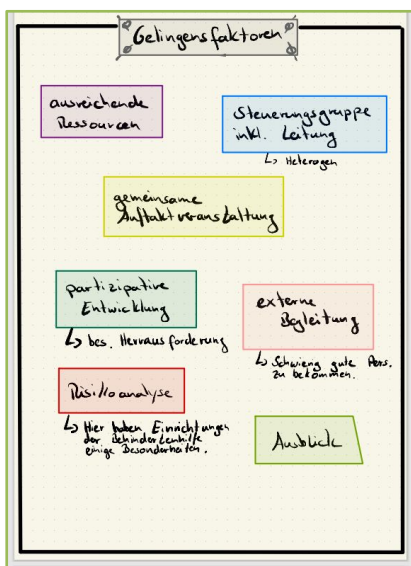 Gelingensfaktoren
ausreichende
Ressourcen
Steuerungsgruppe
inkl. Leitung
↳ Heterogen
gemeinsame
Auftaktveranstaltung
partizipative
Entwicklung
↳ bes. Herrausforderung
externe
Begleitung
↳ Schwierig gute Pers.
zu bekommen.
Risikoanalyse
↳ Hier haben Einrichtungen
der Behindertenhilfe
einige Besonderheiten.
Ausblick